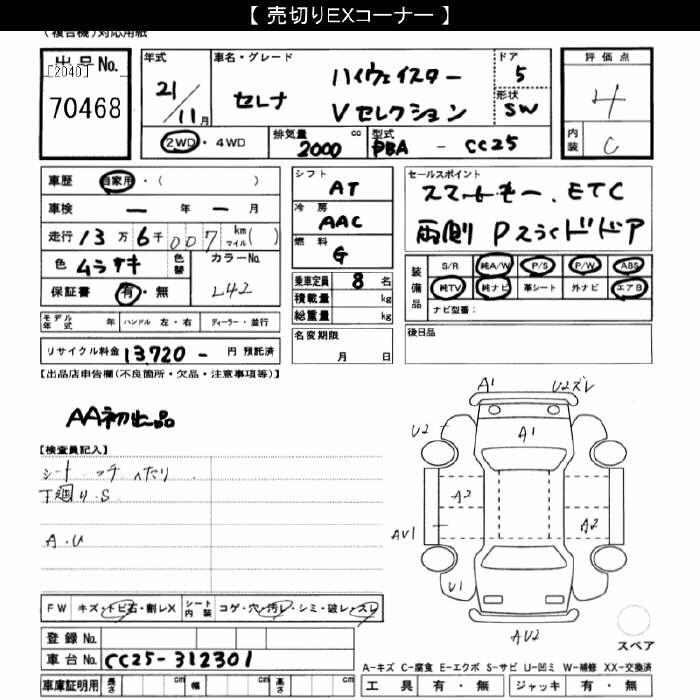 【 売切りEXコーナー 】
(複合機)対応用紙
出品No.
[2040]
70468
年式
21/11月
車名・グレード
セレナ
ハイウェイスター
Vセレクション
ドア
5
形状
SW
評価点
4
内装
C
2WD・4WD
排気量 2000 cc
型式 DBA - CC25
車歴 自家用・( )
車検 ー 年 ー 月
走行 13万6千007 km マイル( )
色 ムラサキ 色替
カラーNo. L42
保証書 有・無
シフト
AT
冷房
AAC
燃料
G
乗車定員 8 名
積載量 kg
総重量 kg
セールスポイント
スマートキー、ETC
両側Pスライドドア
装備品
S/R 純A/W P/S P/W ABS
純TV 純ナビ 革シート 外ナビ エアB
ナビ型番:
モデル年式 年 ハンドル 左・右 ディーラー・並行
名変期限
月 日
後日品
リサイクル料金 13,720- 円 預託済
【出品店申告欄(不良箇所・欠品・注意事項等)】
AA初出品
【検査員記入】
シート コゲ ヘタリ
下廻り・S
A・U
A1
U2ズレ
U2
A1
A2
A2
AV1
U1
AU2
スペア
FW キズ・トビ石・割レX シート内装 コゲ・穴・汚レ・シミ・破レ・スレ
登録No.
車台No. CC25-312301
車庫証明用 長さ cm 幅 cm 高さ cm
A-キズ C-腐食 E-エクボ S-サビ U-凹ミ W-補修 XX-交換済
工具 有・無 ジャッキ 有・無